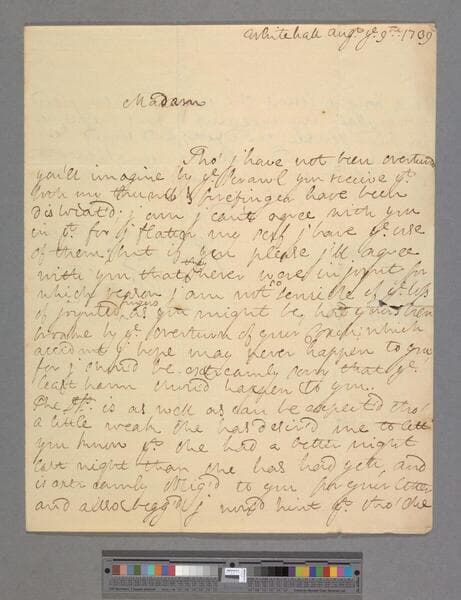 Whitehall Augt. ye. 9th. 1739
Madam
Tho' j have not been overturnd
you'll imagine by ye. Scrawl you receive yt.
both my thumb & forefinger have been
dislocated; j am j cant agree with you
in yt. for j flatter my self j have ye. use
of them, but if you please j'll agree
with you that they never were in joint for
which reason j am not so sensible of ye. loss
of joynted fingers as you might be, had yours been
broake by ye. overturn of your Coach; which
accident j hope may never happen to you
for j should be extreamly sorry that ye.
least harm shou'd happen to you.
The is as well as can be expected tho'
a little weak she has desir'd me to lett
you know yt. she had a better night
last night than she has had yet, and
is extreamly oblig'd to you for your letter
and allso begg'd j wou'd hint yt. tho' she